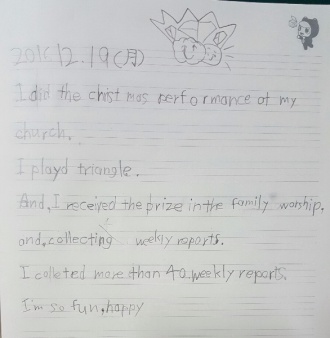 2016.12.19(月)
I did the chist mas performance at my
church.
I playd triangle.
And, I received the prize in the family worship,
and, collecting weekly reports.
I colleted more than 40 weekly reports.
I'm so fun, happy